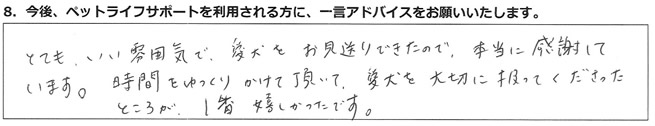 8．今後、ペットライフサポートを利用される方に、一言アドバイスをお願いいたします。
とても、いい雰囲気で、愛犬をお見送りできたので、本当に感謝して
います。時間をゆっくりかけて頂いて、愛犬を大切に扱ってくださった
ところが、1番嬉しかったです。